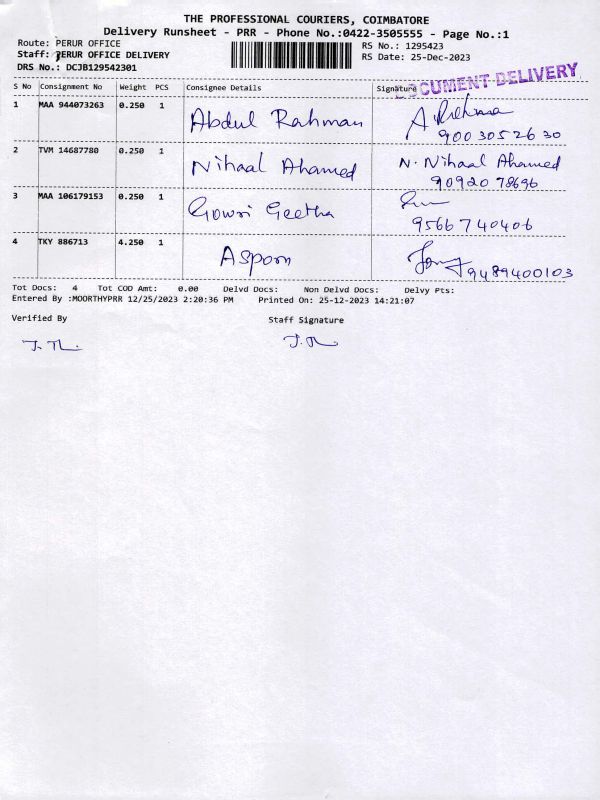 THE PROFESSIONAL COURIERS, COIMBATORE
Delivery Runsheet - PRR - Phone No.:0422-3505555 - Page No.:1
Route: PERUR OFFICE
RS No.: 1295423
Staff: PERUR OFFICE DELIVERY
RS Date: 25-Dec-2023
DRS No.: DCJB129542301
DOCUMENT DELIVERY
S No Consignment No Weight PCS Consignee Details Signature
1 MAA 944073263 0.250 1 Abdul Rahman A Rahman
9003052630
2 TVM 14687780 0.250 1 Nihaal Ahamed N. Nihaal Ahamed
9092078696
3 MAA 106179153 0.250 1 Gowri Geetha
9566740406
4 TKY 886713 4.250 1 Asporn
9489400103
Tot Docs: 4 Tot COD Amt: 0.00 Delvd Docs: Non Delvd Docs: Delvy Pts:
Entered By :MOORTHYPRR 12/25/2023 2:20:36 PM Printed On: 25-12-2023 14:21:07
Verified By Staff Signature